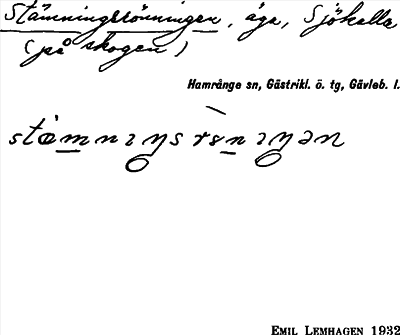 Stämningsrönningen, äga, Sjökalla
(på skogen)
Hamrånge sn, Gästrikl. ö. tg, Gävleb. l.
EMIL LEMHAGEN 1932